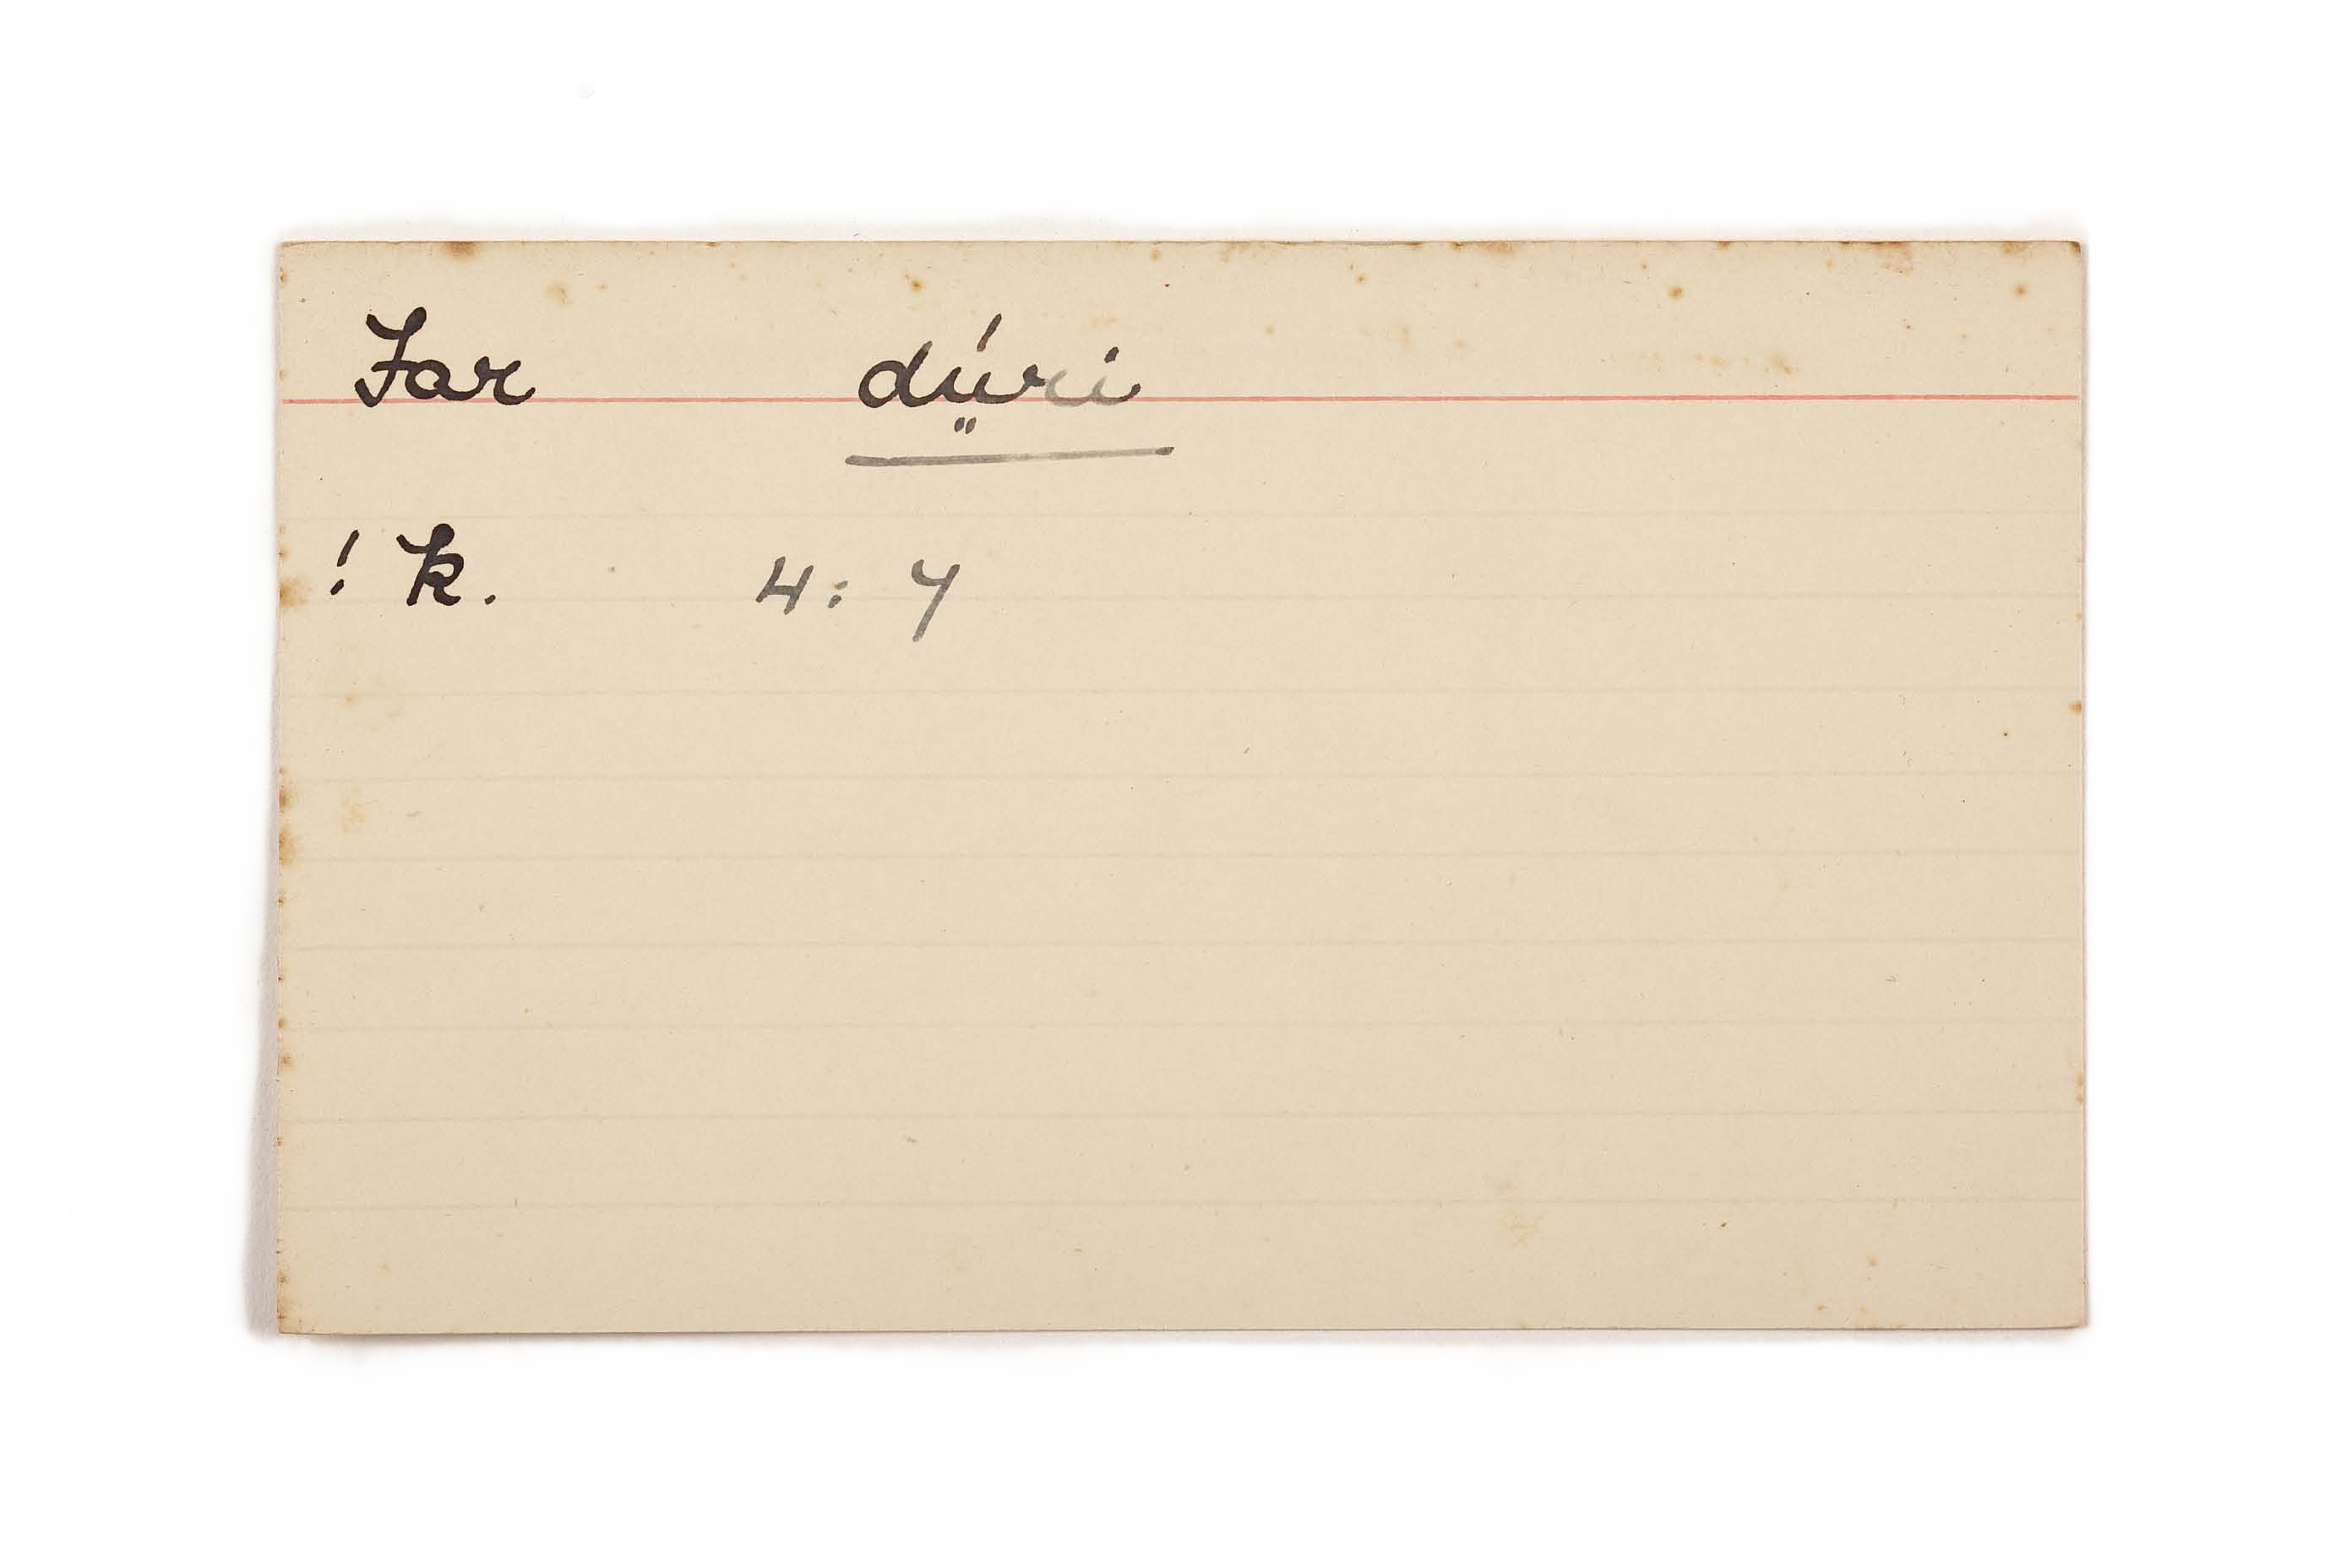 Jar dṳ́ri
! k. 4: 7